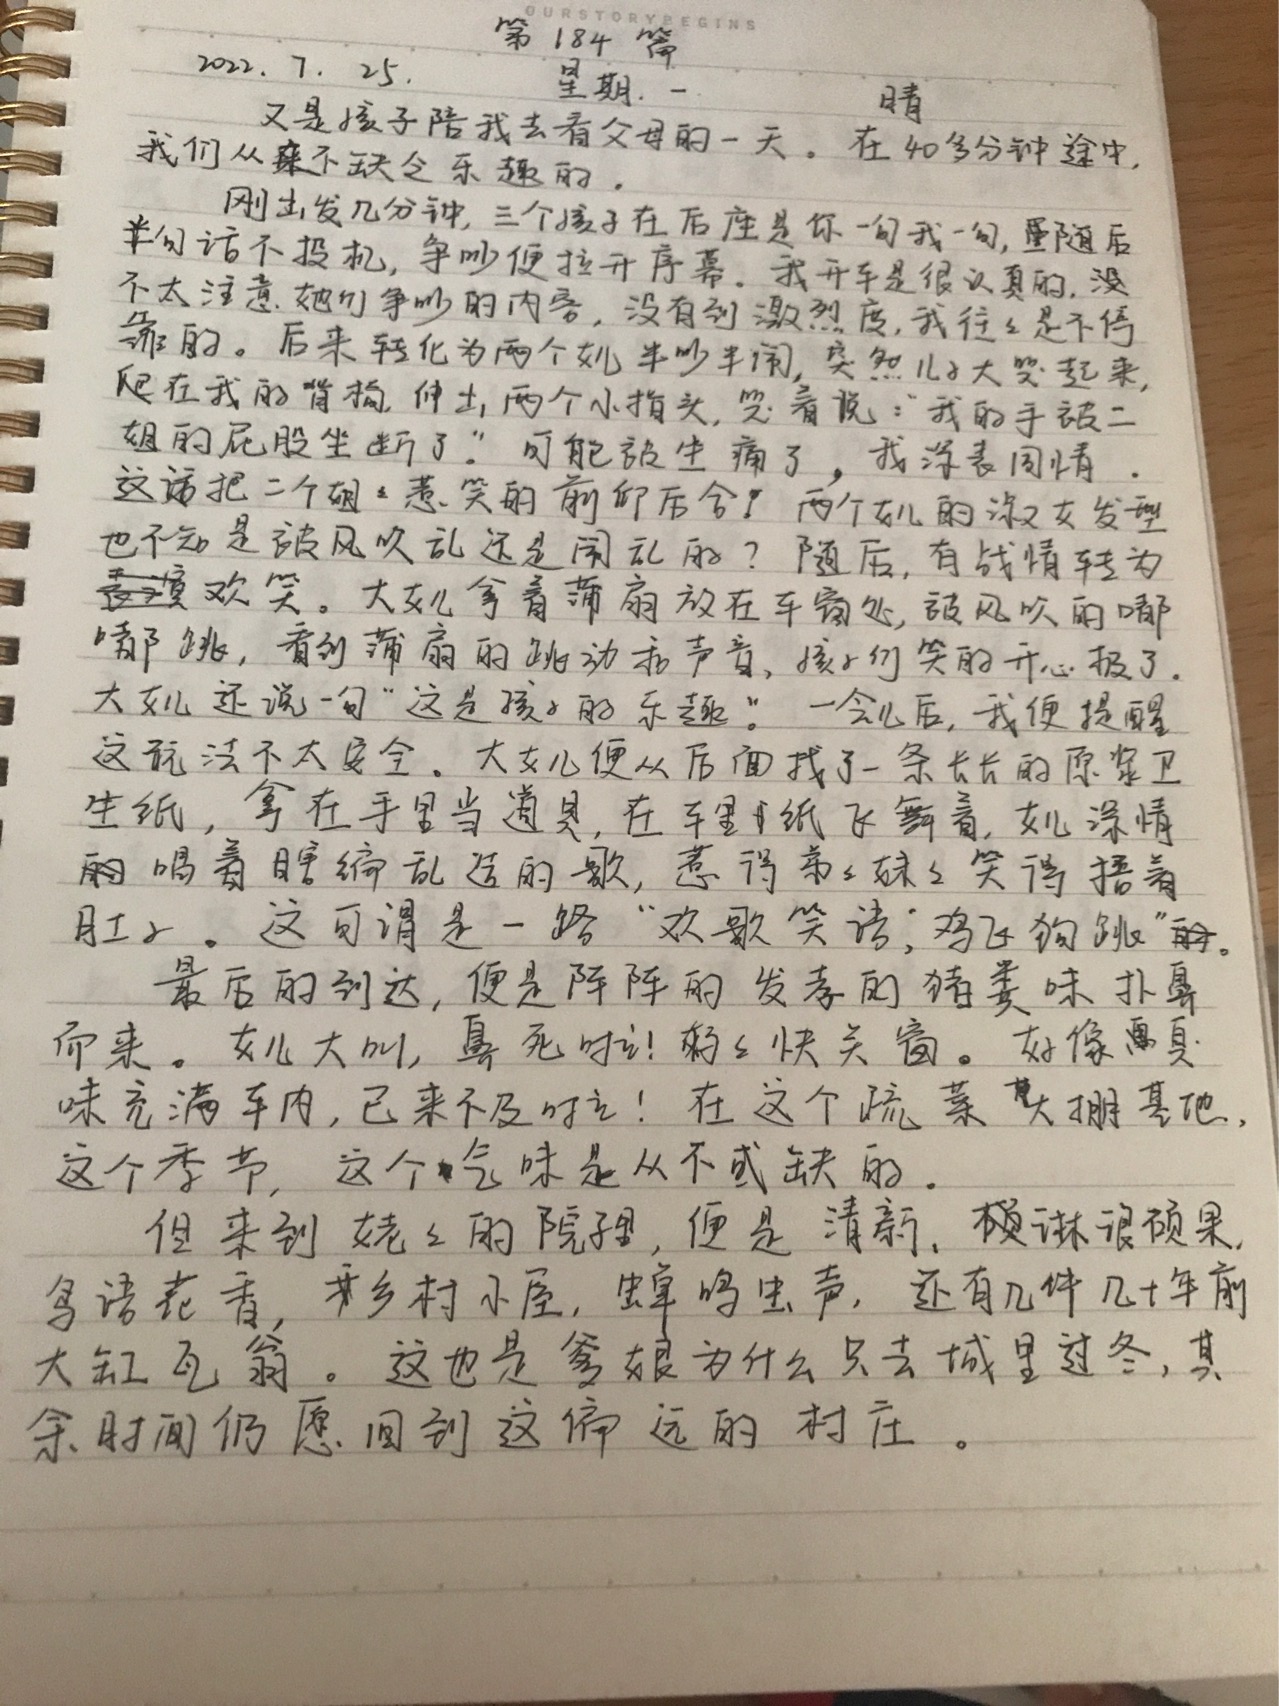 OURSTORYBEGINS
第184篇
2022.7.25. 星期.一 晴
又是孩子陪我去看父母的一天。在40多分钟途中,
我们从来不缺乏乐趣的.
刚出发几分钟,三个孩子在后座是你一句我一句,随后
半句话不投机,争吵便拉开序幕。我开车是很认真的,没
不太注意她们争吵的内容,没有到激烈度,我往々是不停
靠的。后来转化为两个女儿半吵半闹,突然儿子大笑起来,
爬在我的背搞,伸出两个小指头,笑着说:“我的手被二
姐的屁股坐断了”。可能被坐痛了,我深表同情.
这话把二个姐々惹笑的前仰后合!两个女儿的淑女发型
也不知是被风吹乱还是闹乱的?随后,有战情转为
欢笑。大女儿拿着蒲扇放在车窗处,被风吹的嘟
嘟跳,看到蒲扇的跳动和声音,孩子们笑的开心极了.
大女儿还说一句“这是孩子的乐趣”。一会儿后,我便提醒
这玩法不太安全。大女儿便从后面找了一条长长的原浆卫
生纸,拿在手里当道具,在车里纸飞舞着,女儿深情
的唱着瞎编乱造的歌,惹得弟々妹々笑得捂着
肚子。这可谓是一路“欢歌笑语;鸡飞狗跳”。
最后的到达,便是阵阵的发孝的猪粪味扑鼻
而来。女儿大叫,鼻死时立!妈々快关窗。好像臭
味充满车内,已来不及时立!在这个疏菜大棚基地,
这个季节,这个气味是从不或缺的.
但来到姥々的院子里,便是清新、硕果,
鸟语花香,乡村小屋,蝉鸣虫声,还有几件几十年前
大缸瓦翁。这也是爹娘为什么只去城里过冬,其
余时间仍愿回到这偏远的村庄。